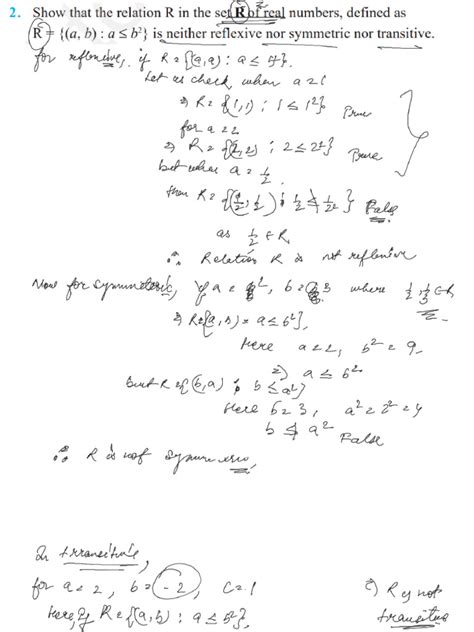 2. Show that the relation R in the set R of real numbers, defined as
R = {(a, b) : a ≤ b²} is neither reflexive nor symmetric nor transitive.
for reflexive, if R = {(a, a) : a ≤ a²}.
Let us check when a = 1
⇒ R = {(1, 1) ; 1 ≤ 1²} True
for a = 2
⇒ R = {(2, 2) ; 2 ≤ 2²} True
but when a = 1/2
then R = {(1/2, 1/2) ; 1/2 ≰ 1/2² } False
as 1/2 ∈ R,
∴ Relation R is not reflexive
Now for symmetric, if a = 2, b = 3 where
⇒ R = {(a, b) = a ≤ b²},
Here a = 2, b² = 9
⇒ a ≤ b²
but R = {(b, a) ; b ≤ a²}
Here b = 3, a² = 2² = 4
b ≰ a² False
∴ R is not symmetric,
In transitive,
for a = 2, b = -2, c = 1
Here, if R = {(a, b) : a ≤ b²},
⇒ R is not
transitive